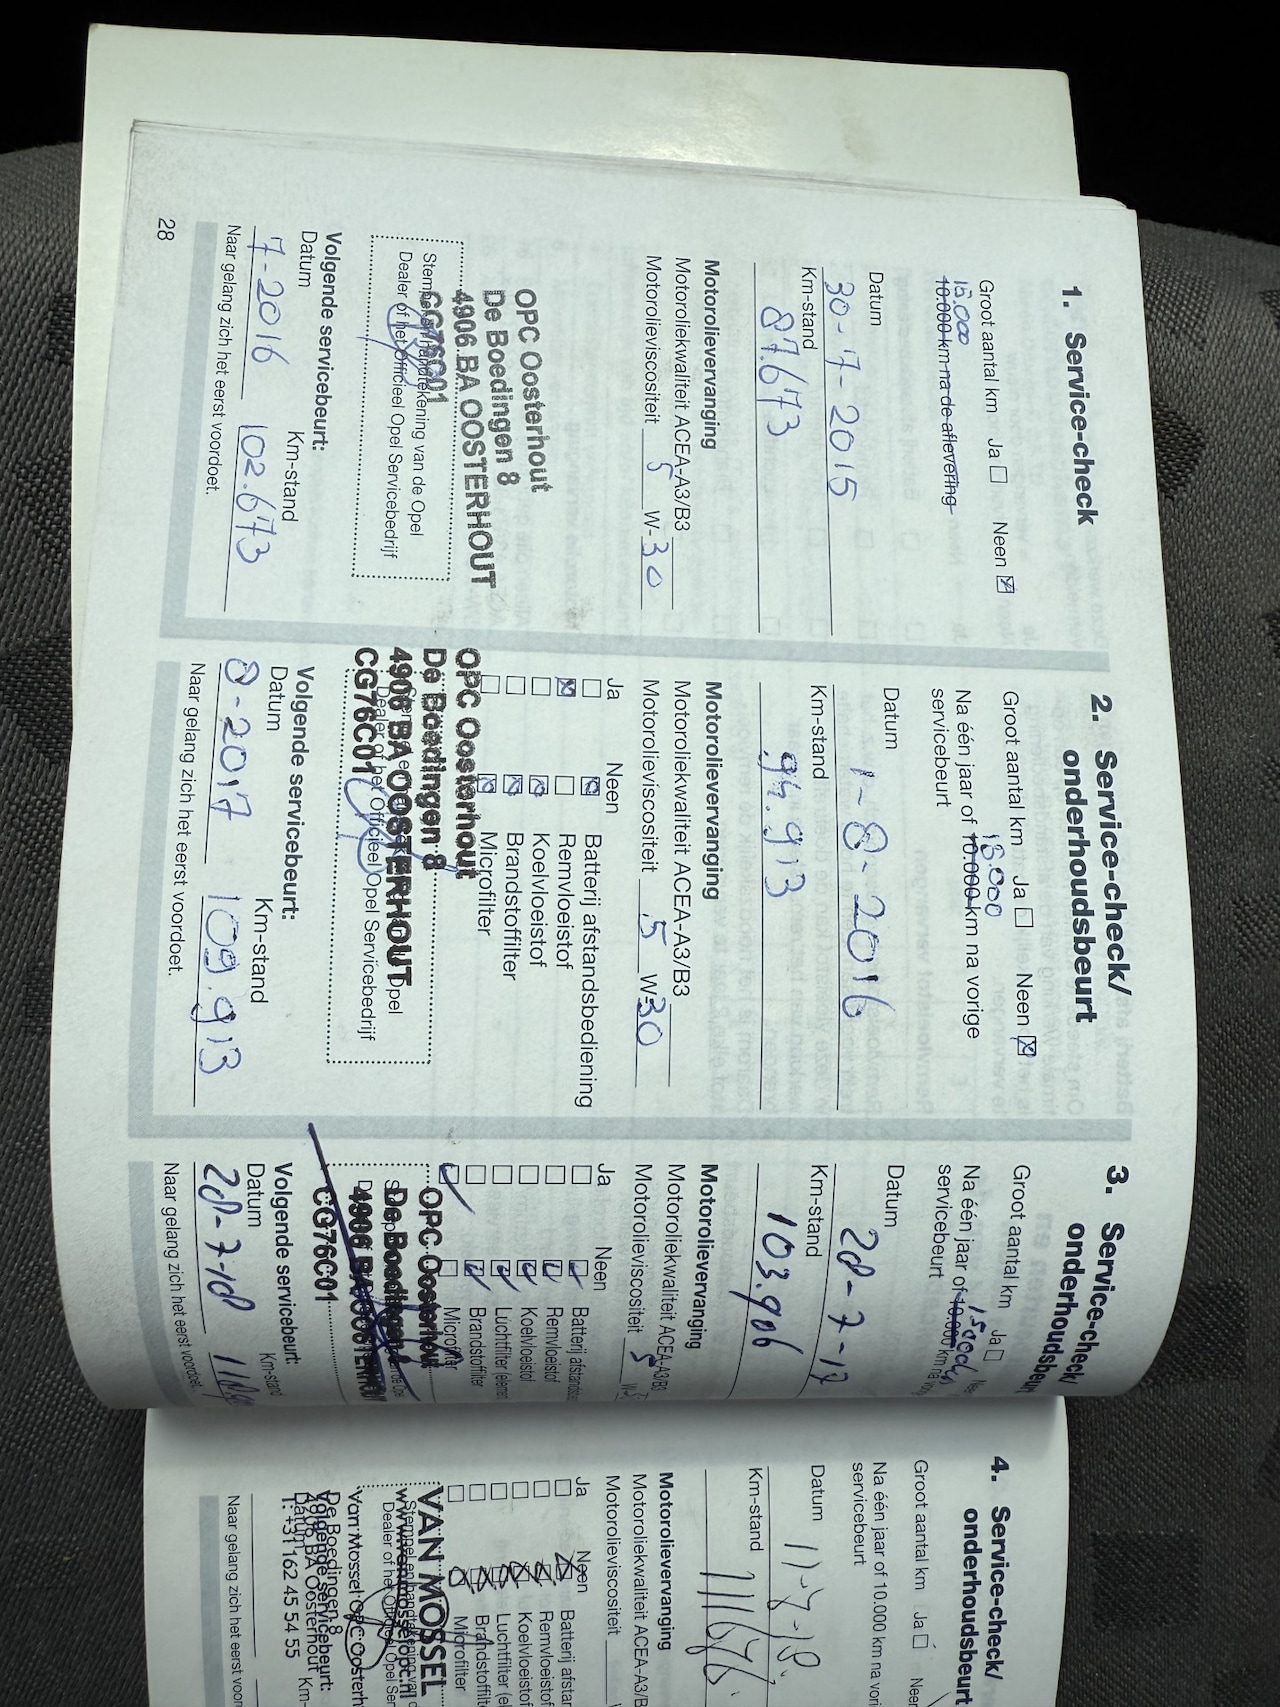 1. Service-check
Groot aantal km Ja Neen
15.000
10.000 km na de aflevering
Datum
30-7-2015
Km-stand
87.673
Motorolievervanging
Motoroliekwaliteit ACEA-A3/B3
Motorolieviscositeit 5 W-30
OPC Oosterhout
De Boedingen 8
4906 BA OOSTERHOUT
CG76C01
Stempel en handtekening van de Opel
Dealer of het Officieel Opel Servicebedrijf
Volgende servicebeurt:
Datum Km-stand
7-2016 102.673
Naar gelang zich het eerst voordoet.
28
2. Service-check/
onderhoudsbeurt
Groot aantal km Ja Neen
15.000
Na één jaar of 10.000 km na vorige
servicebeurt
Datum
1-8-2016
Km-stand
94.913
Motorolievervanging
Motoroliekwaliteit ACEA-A3/B3
Motorolieviscositeit 5 W-30
Ja Neen
Batterij afstandsbediening
Remvloeistof
Koelvloeistof
Brandstoffilter
Microfilter
OPC Oosterhout
De Boedingen 8
4906 BA OOSTERHOUT
CG76C01
Opel
Dealer of het Officieel Opel Servicebedrijf
Volgende servicebeurt:
Datum Km-stand
8-2017 109.913
Naar gelang zich het eerst voordoet.
3. Service-check/
onderhoudsbeurt
Groot aantal km Ja
15000
Na één jaar of 10.000 km na
servicebeurt
Datum
28-7-17
Km-stand
103.906
Motorolievervanging
Motoroliekwaliteit ACEA-A3/B3
Motorolieviscositeit 5
Ja Neen
Batterij
Remvloeistof
Koelvloeistof
Luchtfilter
Brandstoffilter
Microfilter
OPC Oosterhout
De Boedingen
4906 BA OOSTERHOUT
CG76C01
Volgende servicebeurt:
Datum Km-stand
28-7-18
Naar gelang zich het eerst voordoet.
4. Service-check/
onderhoudsbeurt
Groot aantal km Ja Neen
Na één jaar of 10.000 km na
servicebeurt
Datum
Km-stand
111676
Motorolievervanging
Motoroliekwaliteit ACEA-A3/B
Motorolieviscositeit
Ja Neen
Batterij
Remvloeistof
Koelvloeistof
Luchtfilter
Brandstoffilter
Microfilter
VAN MOSSEL
www.vanmosselopc.nl
Stempel en handtekening van
Dealer of het Officieel Opel
Van Mossel OPC
De Boedingen 8
4906 BA Oosterhout
T: +31 162 45 54 55
Volgende servicebeurt:
Datum Km-
Naar gelang zich het eerst